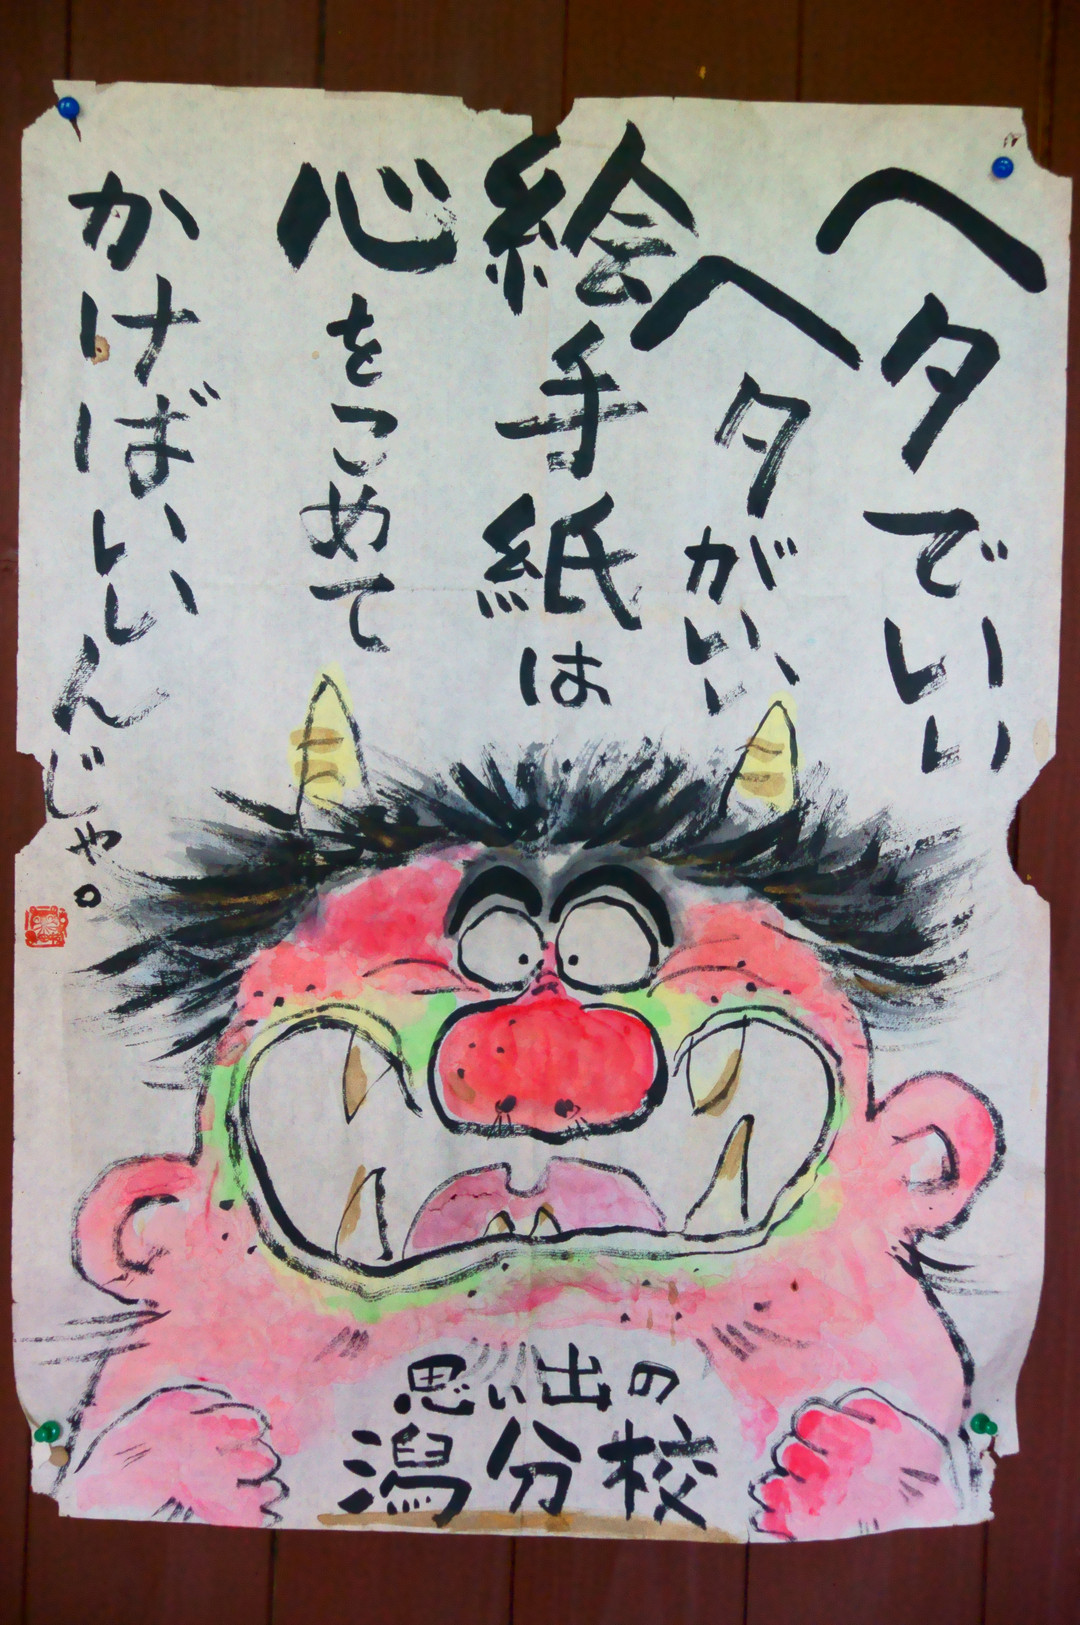 ヘタでいい
ヘタがいい
絵手紙は
心をこめて
かけばいいんじゃ。
思い出の
潟分校